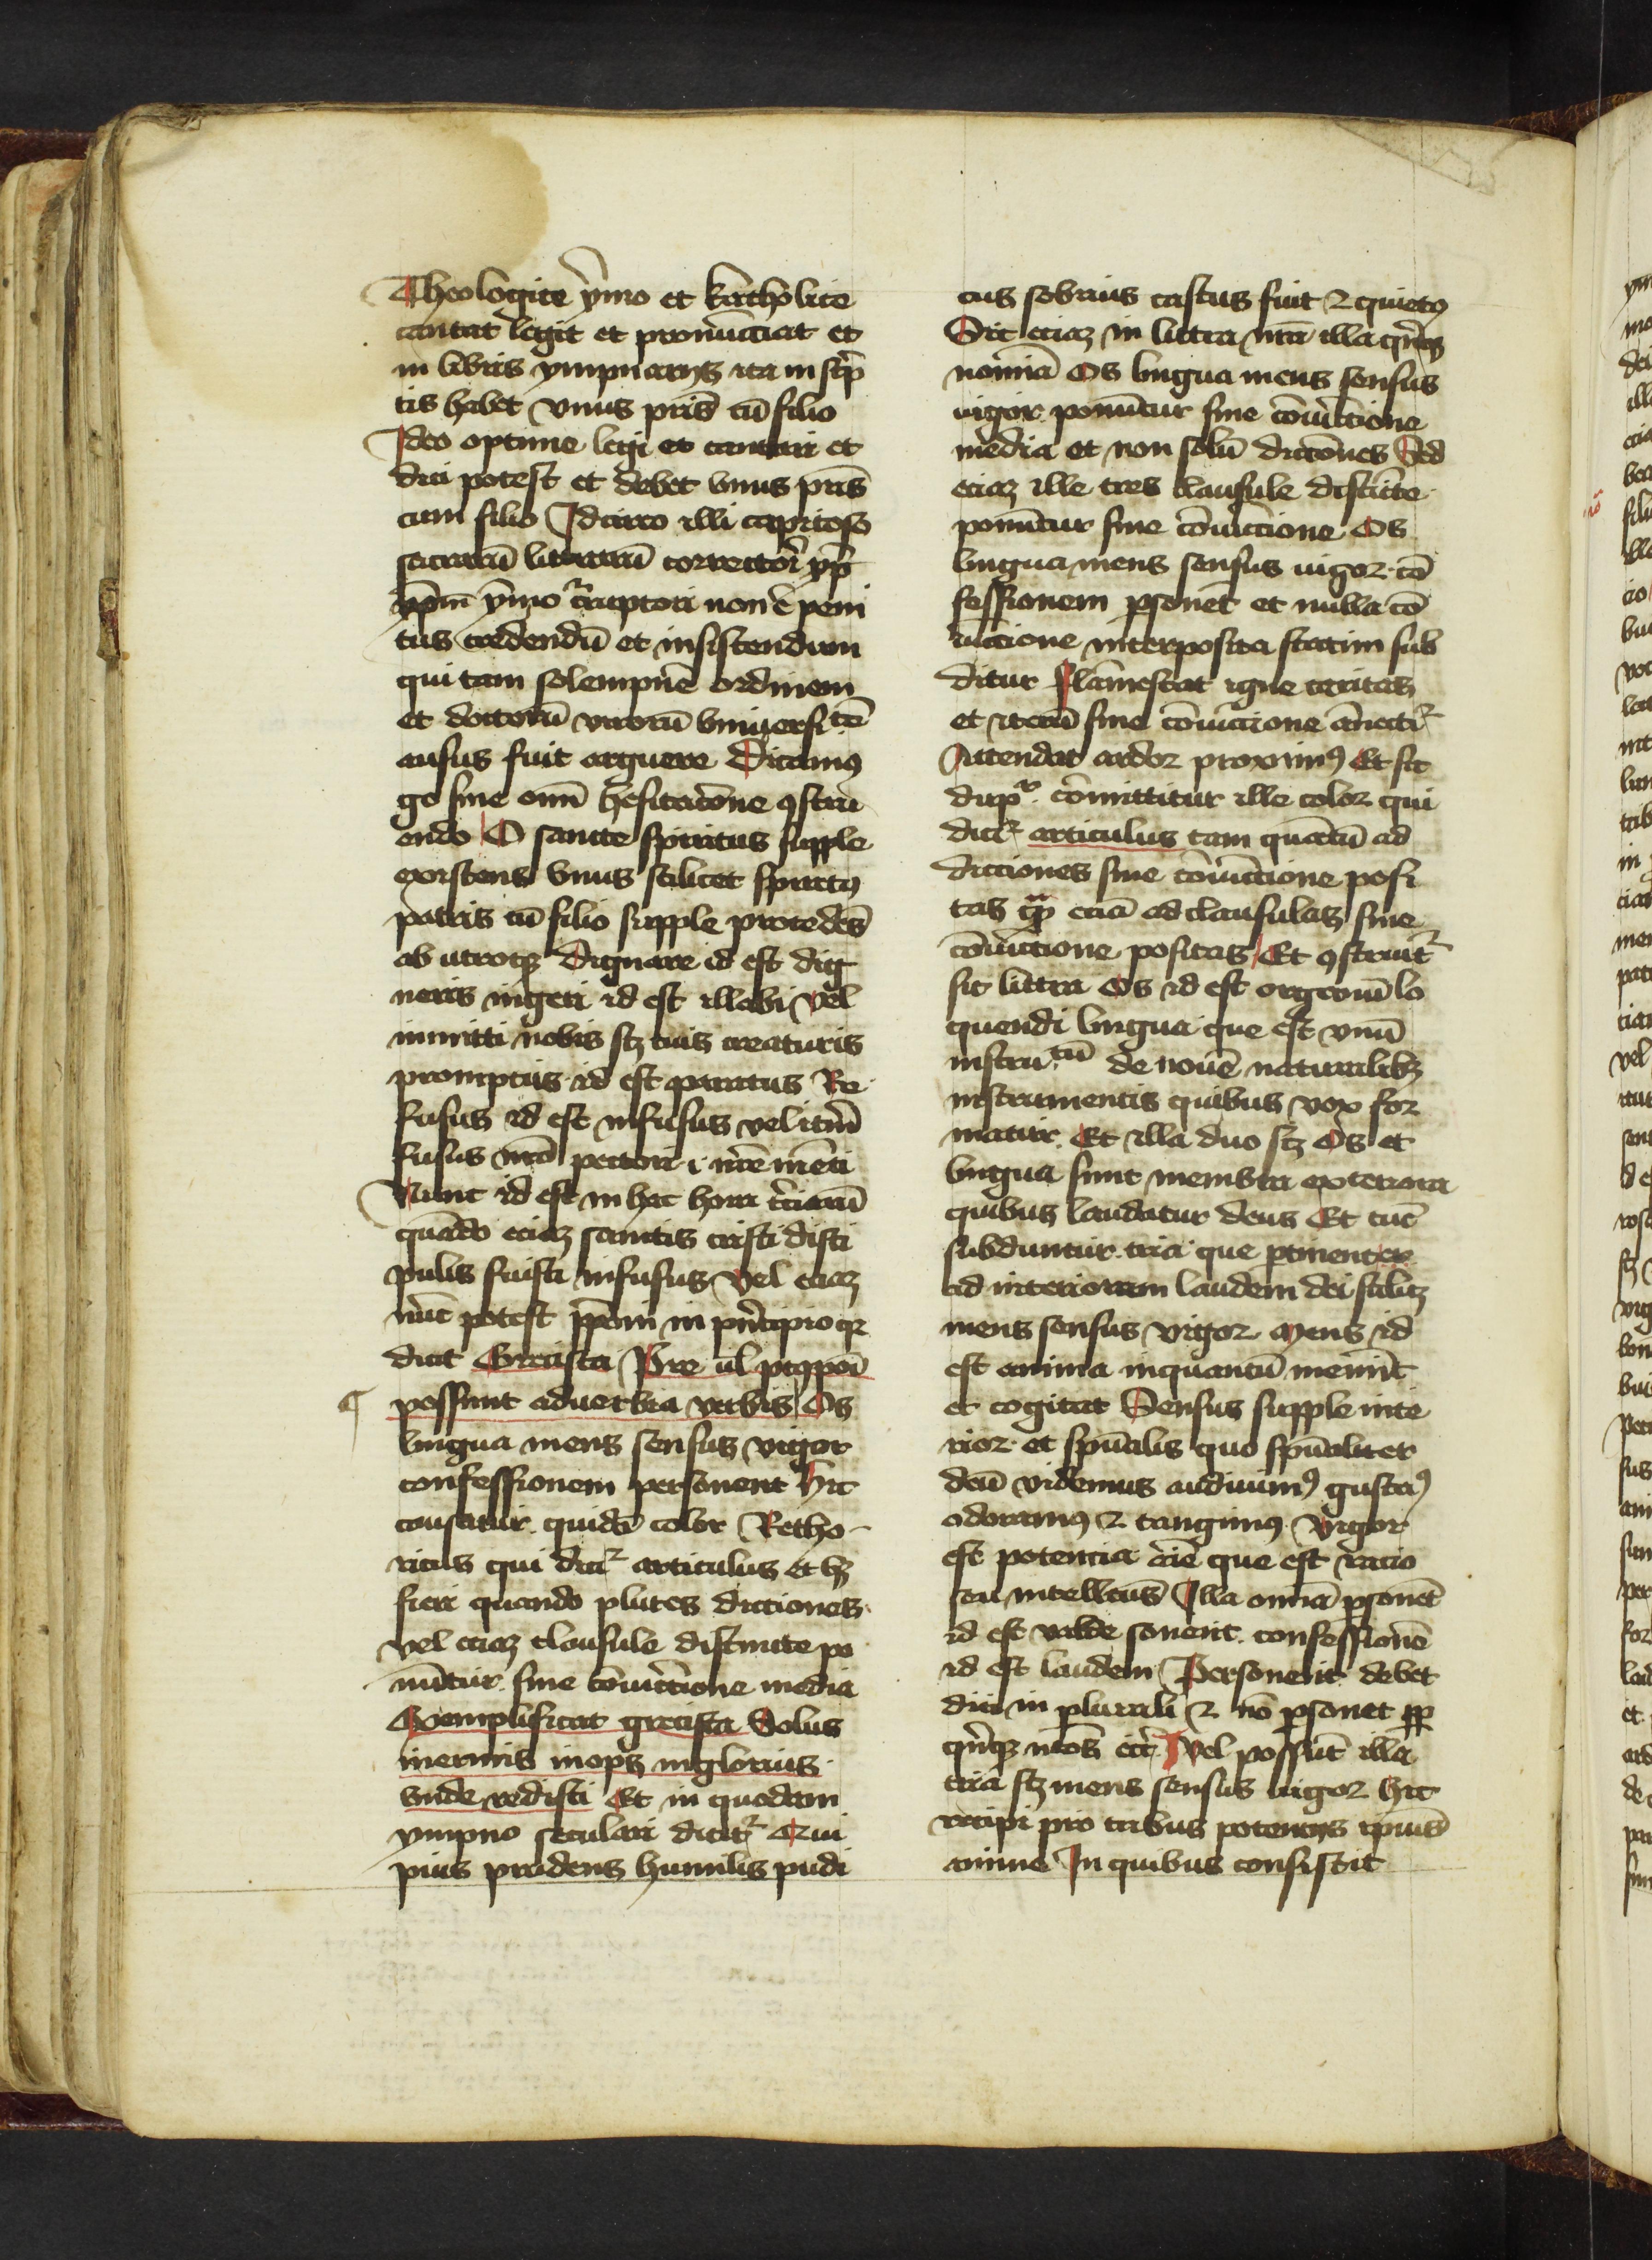 Theologice ymo et katholice
cantat legit et pronuncciat et
in libris ympnarijs ita in scͥp
tis habet vnus pris̄ cū filio
Ideo optime legi et cantari et
dici potest et debet vnus pris̄
cum filio Idcirco illi capcioso
sacrarū litterarū correctori
ymo non ē peni
tus credendū et insistendum
qui tam solempnē ordinem
et doctorū virorū vniuersitē
ausus fuit arguere Dicamꝰ
gͦ sine omī hesitacōne ꝯstru
endo O sancte spiritus supple
existens vnus scilicet spiritꝰ
patris cū filio supple procedēs
ab utroqꝫ Dignare id est dig
neris ingeri id est illabi vel
inmitti nobis sꝫ tuis creaturis
promptus id est paratus Re
fusus id est infusus vel itm̄
fusus nr̄o pectori i nr̄e mēti
Nunc id est in hac hora t̄ciarū
quādo eciaꝫ sanctis cristi disci
pulis fuisti infusus Vel eciaꝫ
nūc potest p̄poni in pn̄cipio qꝛ
dicit Grecista Pre ul̄ postponi
possunt aduerbia verbis Os
lingua mens sensus vigor
confessionem personent Hic
tangitur quidā color Retho
ricus qui dicitᷣ articulus et hꝫ
fieri quando plures dictiones
vel eciaꝫ clausule distincte po
nūtur sine cōiūctione media
Exemplificat grecista Solus
inermis inops inglorius
vnde redisti Et in quodam
ympno seculari dicitᷣ Qui
pius prudens humilis pudi
cus sobrius castus fuit ⁊ quietꝰ
Sic eciaꝫ in littera nr̄a illa qn̄qꝫ
nomīa Os lingua mens sensus
uigor ponūtur sine cōiūctione
media et non solū dictōnes Sed
eciaꝫ ille tres clausule distincte
ponūtur sine cōiūctione Os
lingua mens sensus uigor cō
fessionem ꝑsonēt et nulla cō
iūctione interposita statim sub
ditur Flām̄escat igne caritas
et iterū sine cōiūctione ānectitᷣ
Accendat ardor proximꝰ Et sic
duplr̄ cōmittitur ille color qui
dicitᷣ articulus tam quātū ad
dicciones sine cōiūctione posi
tas qͣꝫ eciā ad clausulas sine
cōiūctione positas Et ꝯstruitᷣ
sic littera Os id est organū lo
quendi lingua que est vnū
instrūtū de nouē naturalibꝫ
instrumentis quibus vox for
matur Et illa duo sꝫ Os et
lingua sunt membra exteriora
quibus laudatur deus Et tūc
subduntur tria que ꝑtinent
ad interiorem laudem dei scilicꝫ
mens sensus vigor Mens id
est anima inquantū meminit
et cogitat Sensus supple inte
rior et spūalis quo spūaliter
deū videmus audiuimꝰ gustaꝰ
odoramꝰ ⁊ tangimꝰ Vigor
est potencia aīe que est racio
seu intellctūs Illa omīa ꝑsonēt
id est valde sonent confessionē
id est laudem Personent debet
dici in plurali ⁊ nō ꝑsonet ꝓp
qn̄qꝫ nīos etc̄ Vel possūt illa
tria sꝫ mens sensus uigor hic
recipi pro tribus potencijs ipsius
anime In quibus consistit